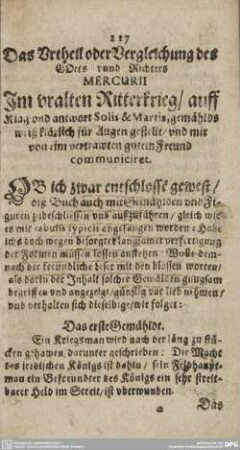 227
Das Vrtheil oder Vergleichung des
GOtts vnnd Richters
MERCURII
Im vralten Ritterkrieg/ auff
Klag vnd antwort Solis & Martis, gemählds
weiß klärlich für Augen gestellt/ vnd mir
von eim vertrawten gutem Freund
communiciret.
OB ich zwar entschlosse gewest/
diß Buch auch mit Gemählden vnd Fi-
guren zubeschliessen vnd außzuführen/ gleich wie
es mit tabulis typicis angefangen worden: Habe
ich es doch wegen besorgter langsamer verfertigung
der Formen müssen lassen anstehen. Wolle dem-
nach der freundliche Leser mit den blossen worten/
als darin der Inhalt solcher Gemälden gnugsam
begriffen vnd angezeigt/ günstig vor lieb nehmen/
vnd verhalten sich dieselbige/ wie folget:
Das erste Gemähldt.
Ein Kriegsman wird nach der läng zu stü-
cken gehawen, darunter geschrieben: Die Macht
des irdischen Königs ist dahin/ sein Feldhaupt-
man ein Befreundter des Königs ein sehr streit-
barer Held im Streit/ ist vberwunden.
Das